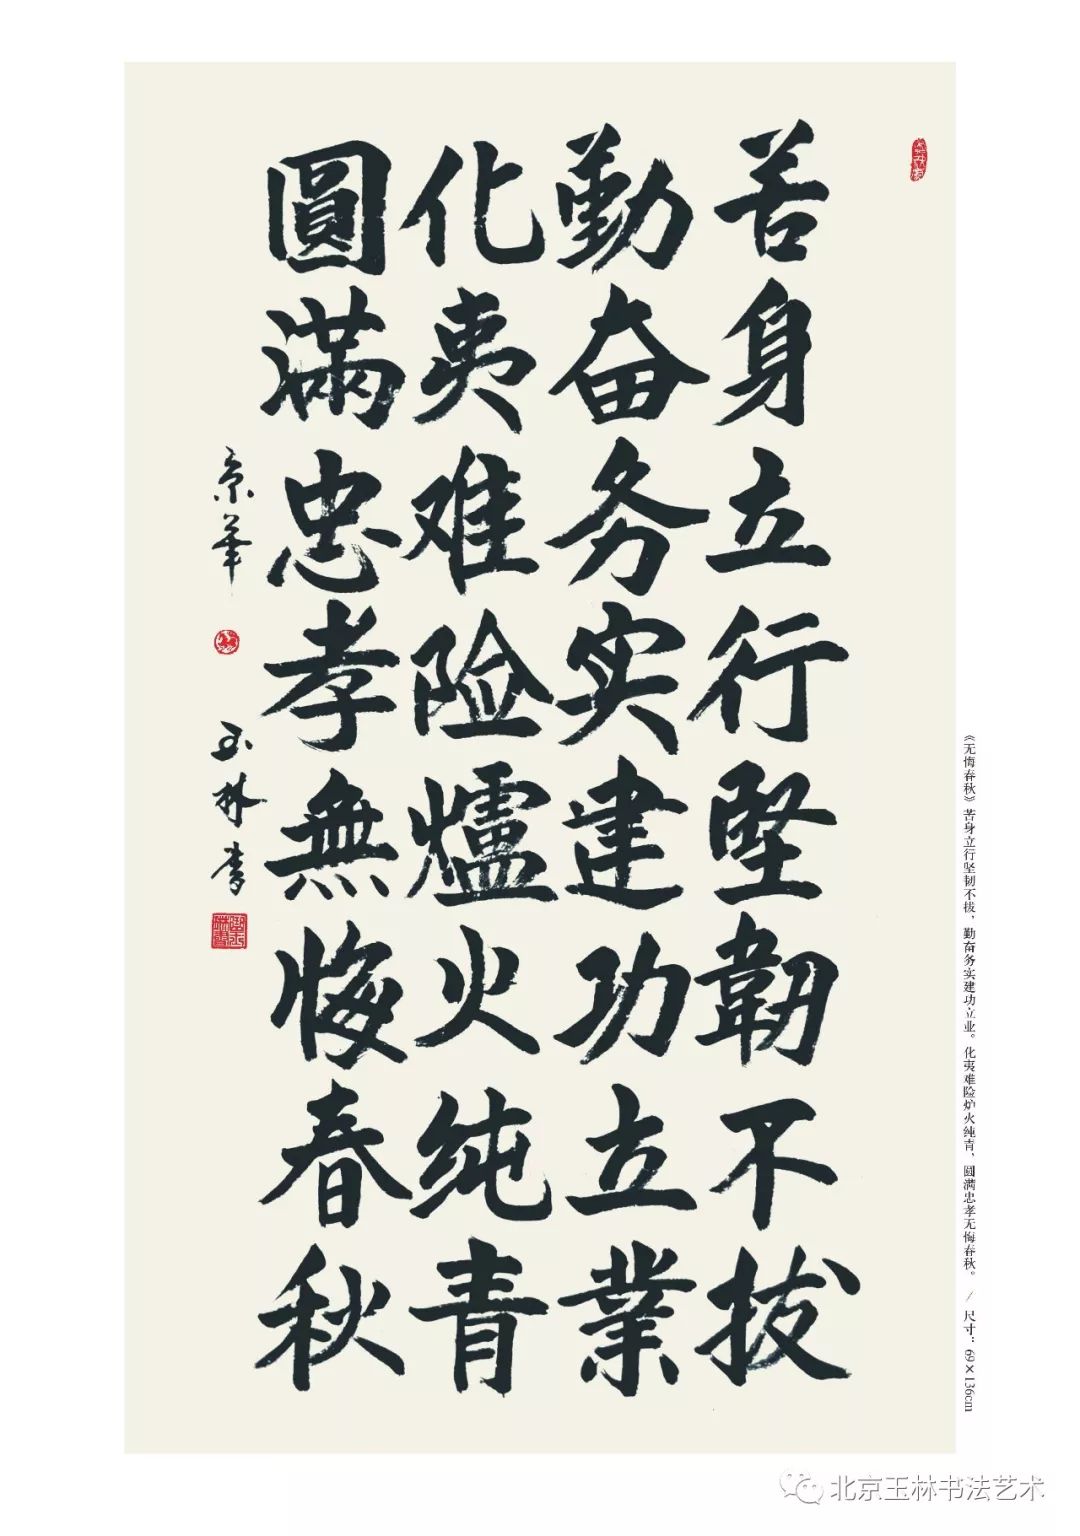 苦身立行堅韌不拔
勤奋务实建功立業
化夷难险爐火纯青
圓滿忠孝無悔春秋
京華
玉林書
《无悔春秋》苦身立行坚韧不拔，勤奋务实建功立业。化夷难险炉火纯青，圆满忠孝无悔春秋。 / 尺寸：69×136cm
北京玉林书法艺术